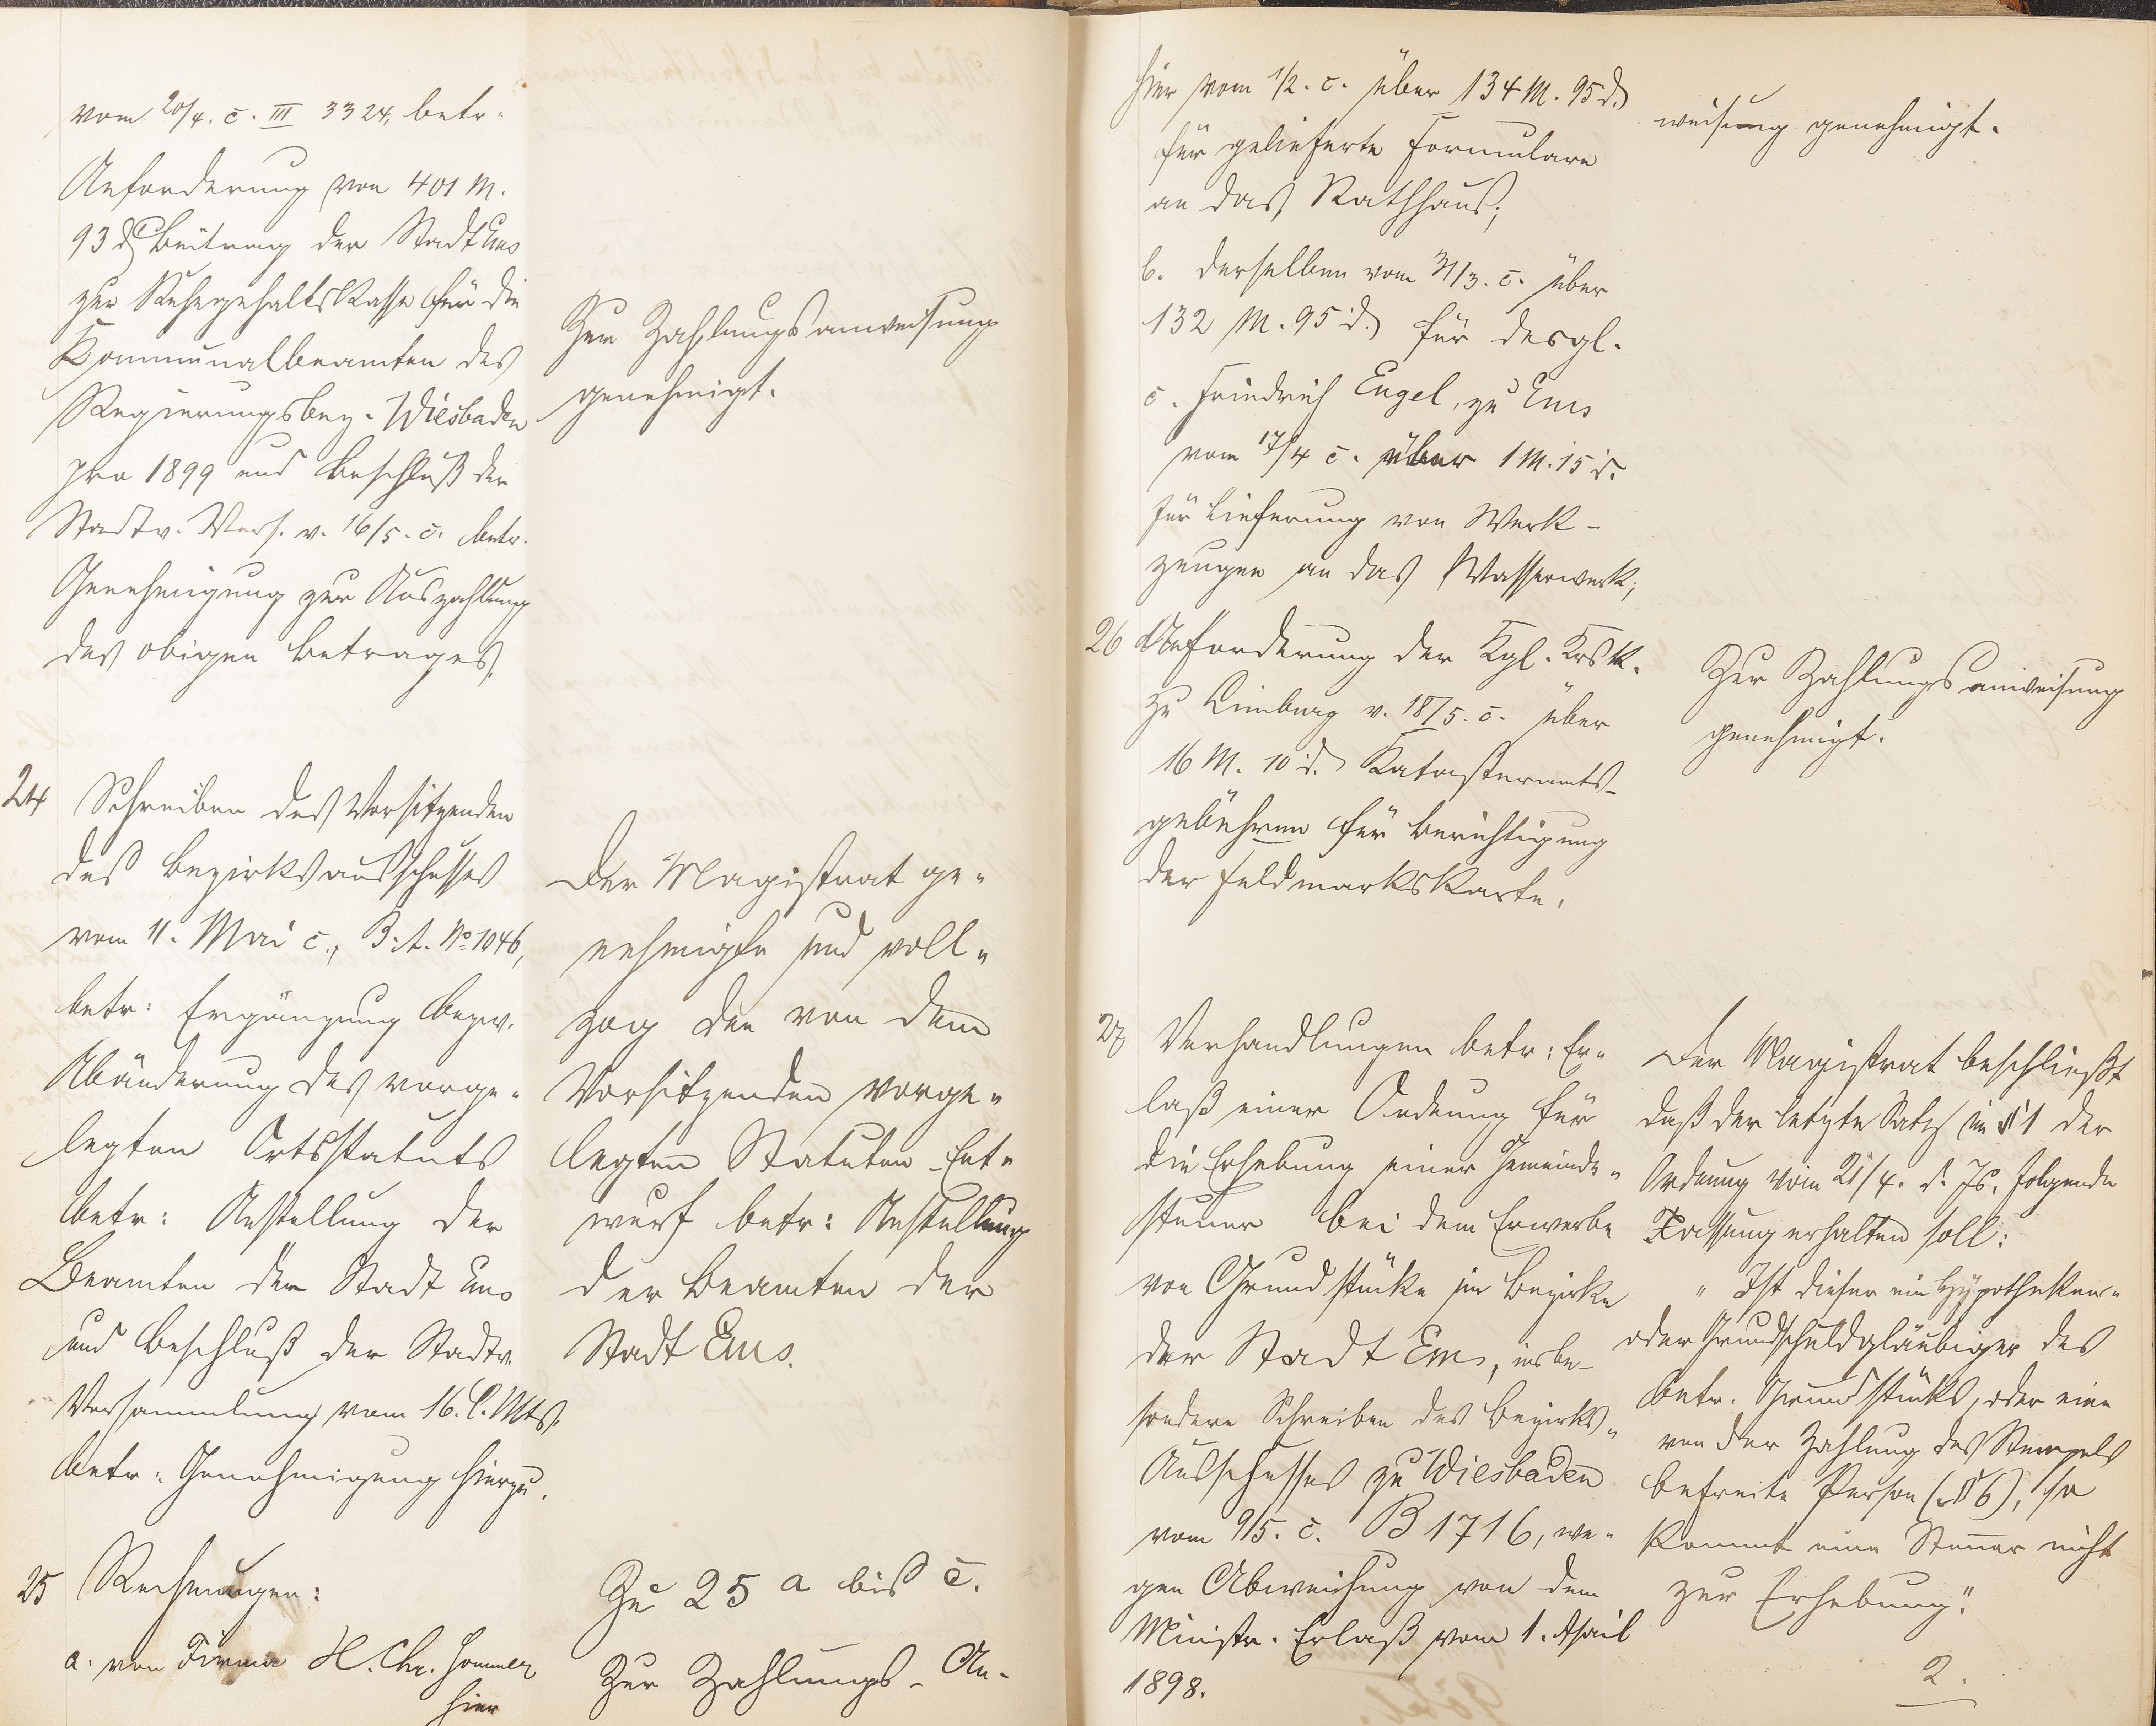 vom 20/4. c. III 3324, betr.
Anforderung von 401 M.
93 d Beitrag der Stadt Ems
zur Ruhegehaltskasse für die
Kommunalbeamten des
Regierungsbez. Wiesbaden
pro 1899 und Beschluß der
Stadtv. Vers. v. 16/5. c. betr.
Genehmigung zur Auszahlung
des obigen Betrages.
Zur Zahlungsanweisung
genehmigt.
24 Schreiben des Vorsitzenden
des Bezirksausschusses
vom 11. Mai c., B. A. No 1046,
betr: Ergänzung bezw.
Abänderung des vorge-
legten Ortsstatuts
betr: Anstellung der
Beamten der Stadt Ems
und Beschluß der Stadtv.
Versammlung vom 16. l. Mts.
betr: Genehmigung hierzu.
Der Magistrat ge-
nehmigte und voll-
zog den von dem
Vorsitzenden vorge-
legten Statuten-Ent-
wurf betr: Anstellung
der Beamten der
Stadt Ems.
25 Rechnungen:
a. von Firma H. Chr. Sommer
hier
Zu 25 a bis c.
Zur Zahlungs-An-
hier vom 1/2. c. über 134 M. 95 d.
für gelieferte Formulare
an das Rathhaus;
b. derselben vom 31/3. c. über
132 M. 95 d. für desgl.
c. Friedrich Engel, zu Ems
vom 17/4 c. über 1 M. 15 d.
für Lieferung von Werk-
zeugen an das Wasserwerk;
weisung genehmigt.
26 Anforderung der Kgl. Krsk.
zu Limburg v. 18/5. c. über
16 M. 10 d. Katasteramts-
gebühren für Berichtigung
der Feldmarkskarte.
Zur Zahlungsanweisung
genehmigt.
27 Verhandlungen betr: Er-
laß einer Ordnung für
die Erhebung einer Gemeinde-
steuer bei dem Erwerbe
von Grundstücke im Bezirke
der Stadt Ems, insbe-
sondere Schreiben des Bezirks-
Ausschusses zu Wiesbaden
vom 9/5. c. B 1716, we-
gen Abweichung von dem
Ministr. Erlaß vom 1. April
1898.
Der Magistrat beschließt
daß der letzte Satz im § 1 der
Ordnung vom 21/4. d. Js. folgende
Fassung erhalten soll:
" Ist dieser ein Hypotheken-
oder Grundschuldgläubiger des
betr. Grundstücks, oder eine
von der Zahlung des Stempels
befreite Person (§ 6), so
kommt eine Steuer nicht
zur Erhebung."
2.